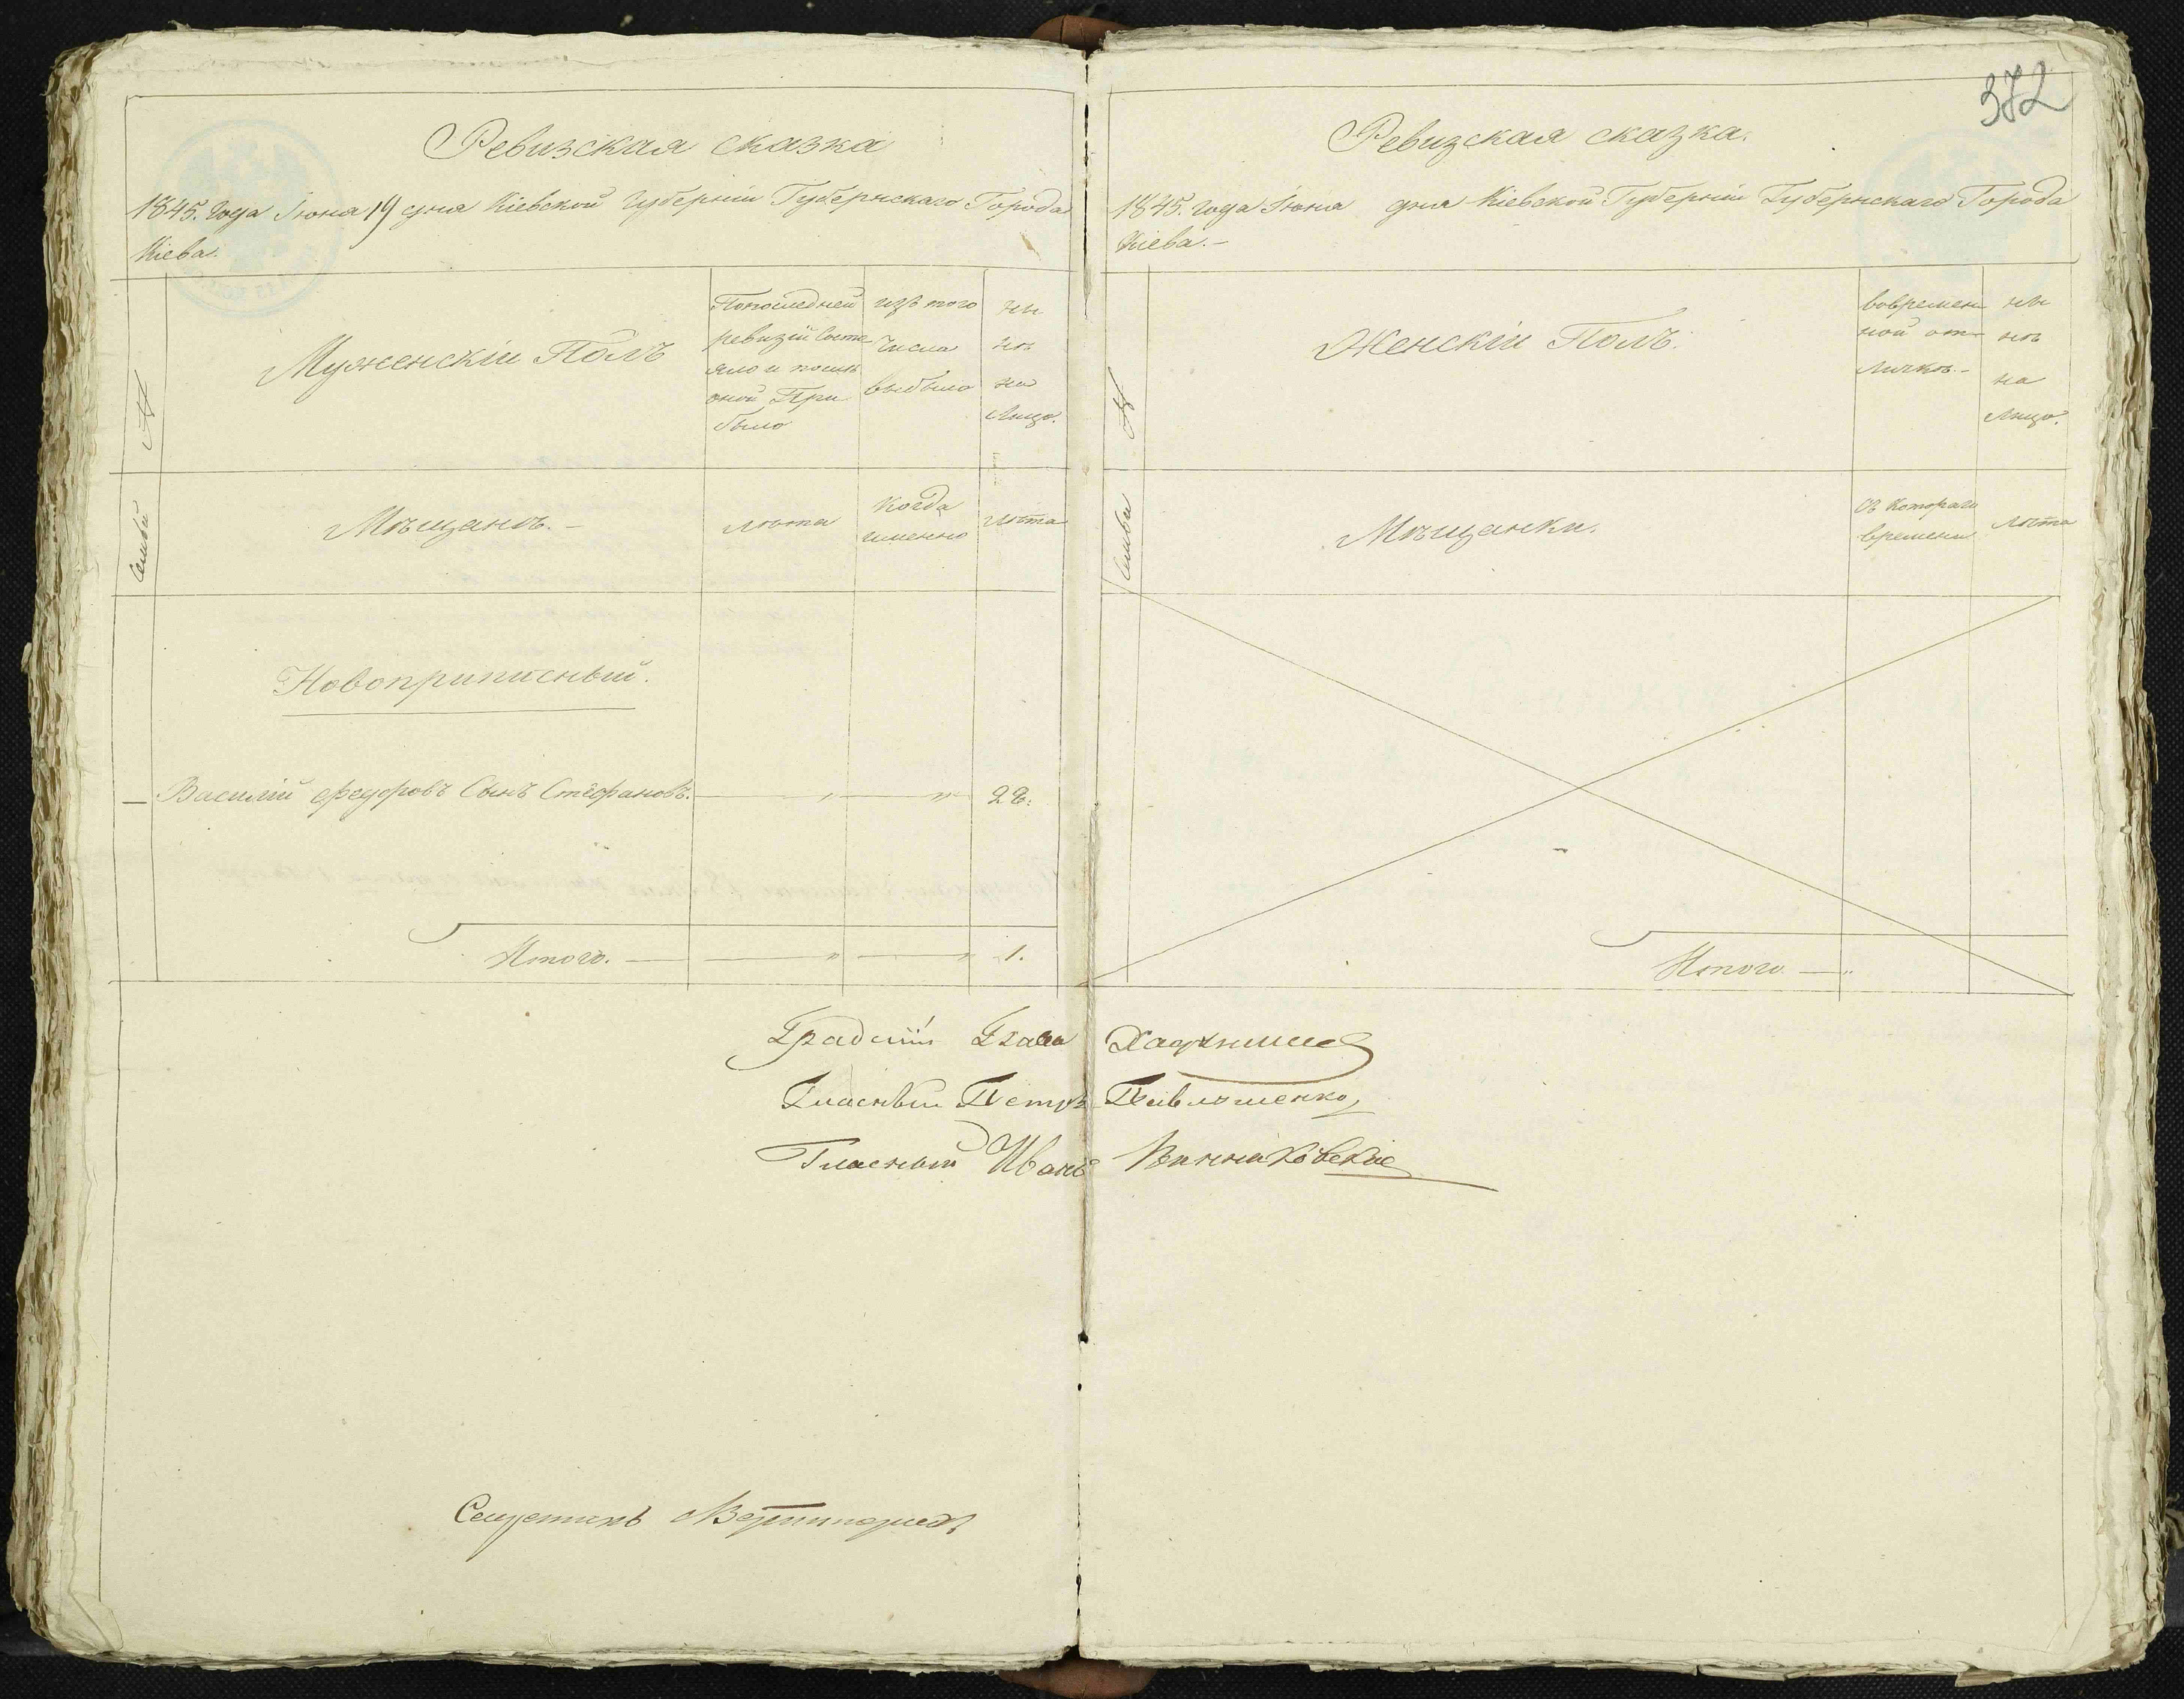 Ревизская сказка
1845. Года Іюна 19 дня Кіевской Губерніи Губернскаго Города
Кіева.
№
Мужескій Полъ
Попоследней
ревизіи состо
яло и после
оной При
было
изъ того
числа
выбыло
ны
нѣ
на
Лицо.
Семьи
Мѣщанъ. -
лѣта
когда
именно
лѣта
Новоприписный.
Василій Федоровъ Сынъ Стефановъ.
Итого.
1.
372
Ревизская сказка.
1845. года Іюна дня Кіевской Губерніи Губернскаго Города
Кіева. -
№
Женскій Полъ.
вовремен
ной от-
лучкѣ. -
ны
нѣ
на
Лицо.
Семьи
Мѣщанки.
Съ Котораго
времени
Лѣта
Итого
Градскій Глава
Гласный Петръ Павлюшенко
Гласный Иванъ